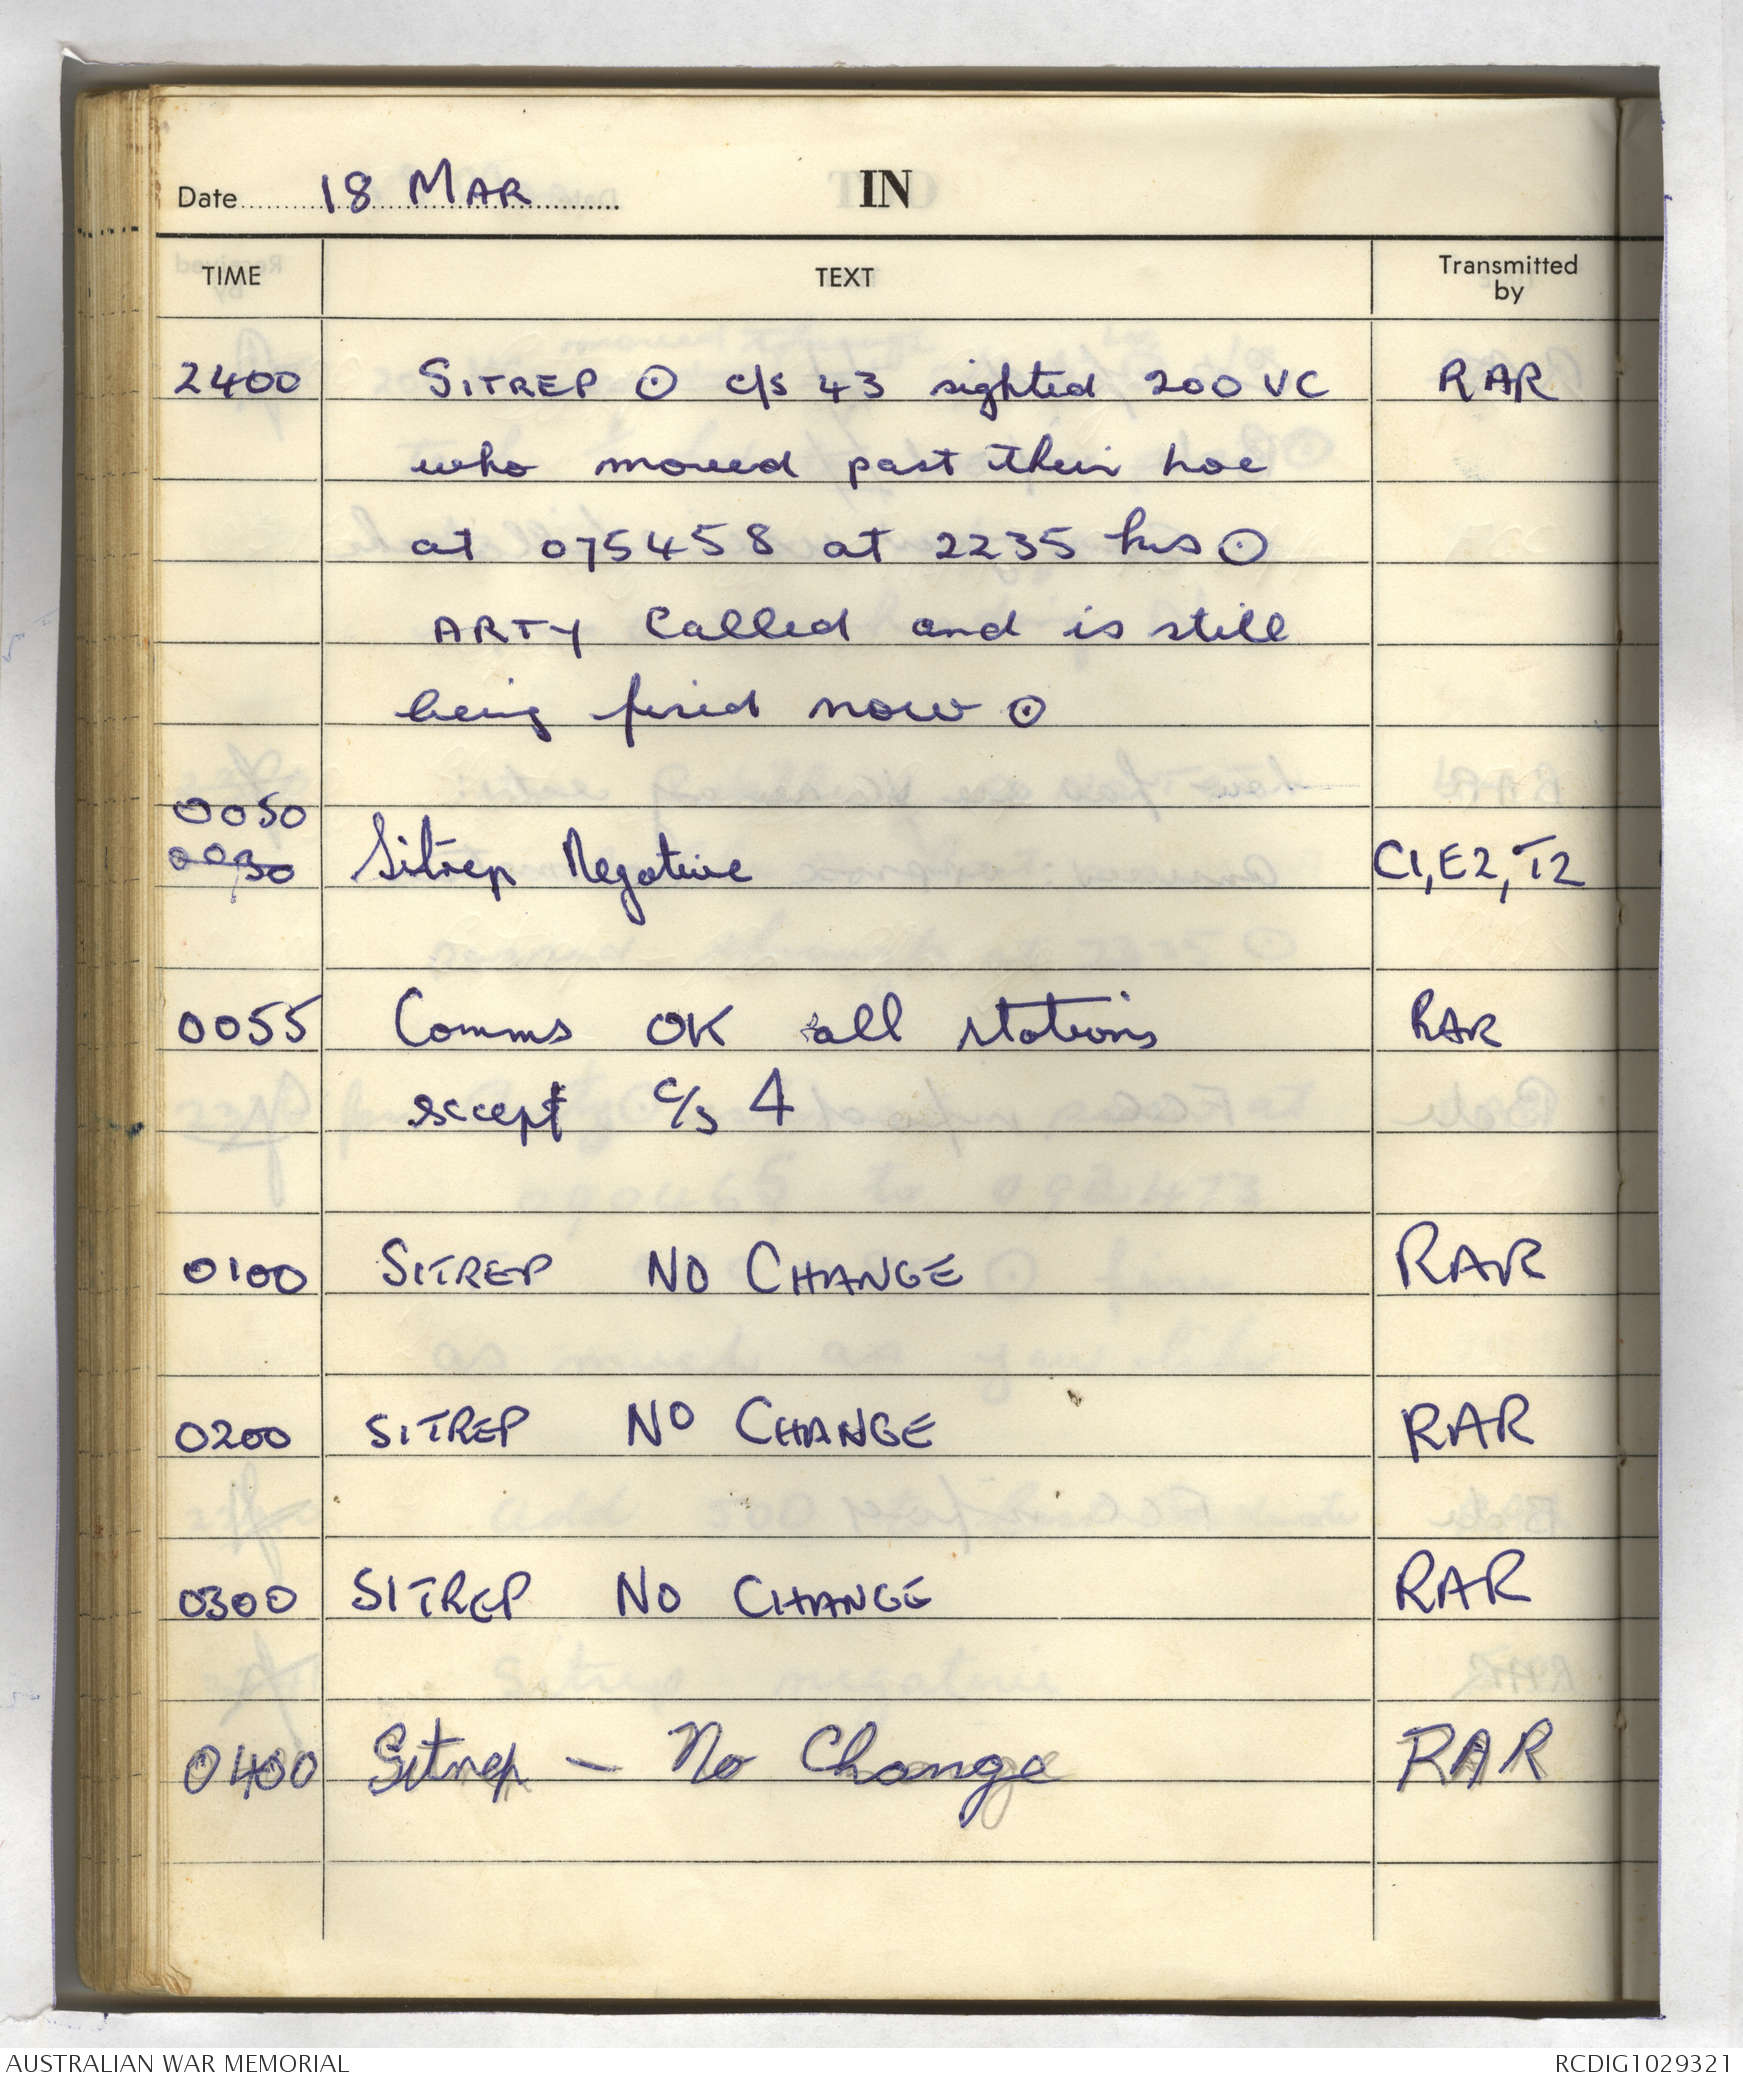 Date 18 MAR IN
TIME TEXT Transmitted by
2400 SITREP ⊙ c/s 43 sighted 200 VC RAR
who moved past their hoc
at 075458 at 2235 hrs ⊙
ARTY Called and is still
being fired now ⊙
0050
0030 Sitrep Negative C1, E2, T2
0055 Comms OK all stations RAR
except c/s 4
0100 SITREP NO CHANGE RAR
0200 SITREP NO CHANGE RAR
0300 SITREP NO CHANGE RAR
0400 Sitrep - No Change RAR
AUSTRALIAN WAR MEMORIAL RCDIG1029321